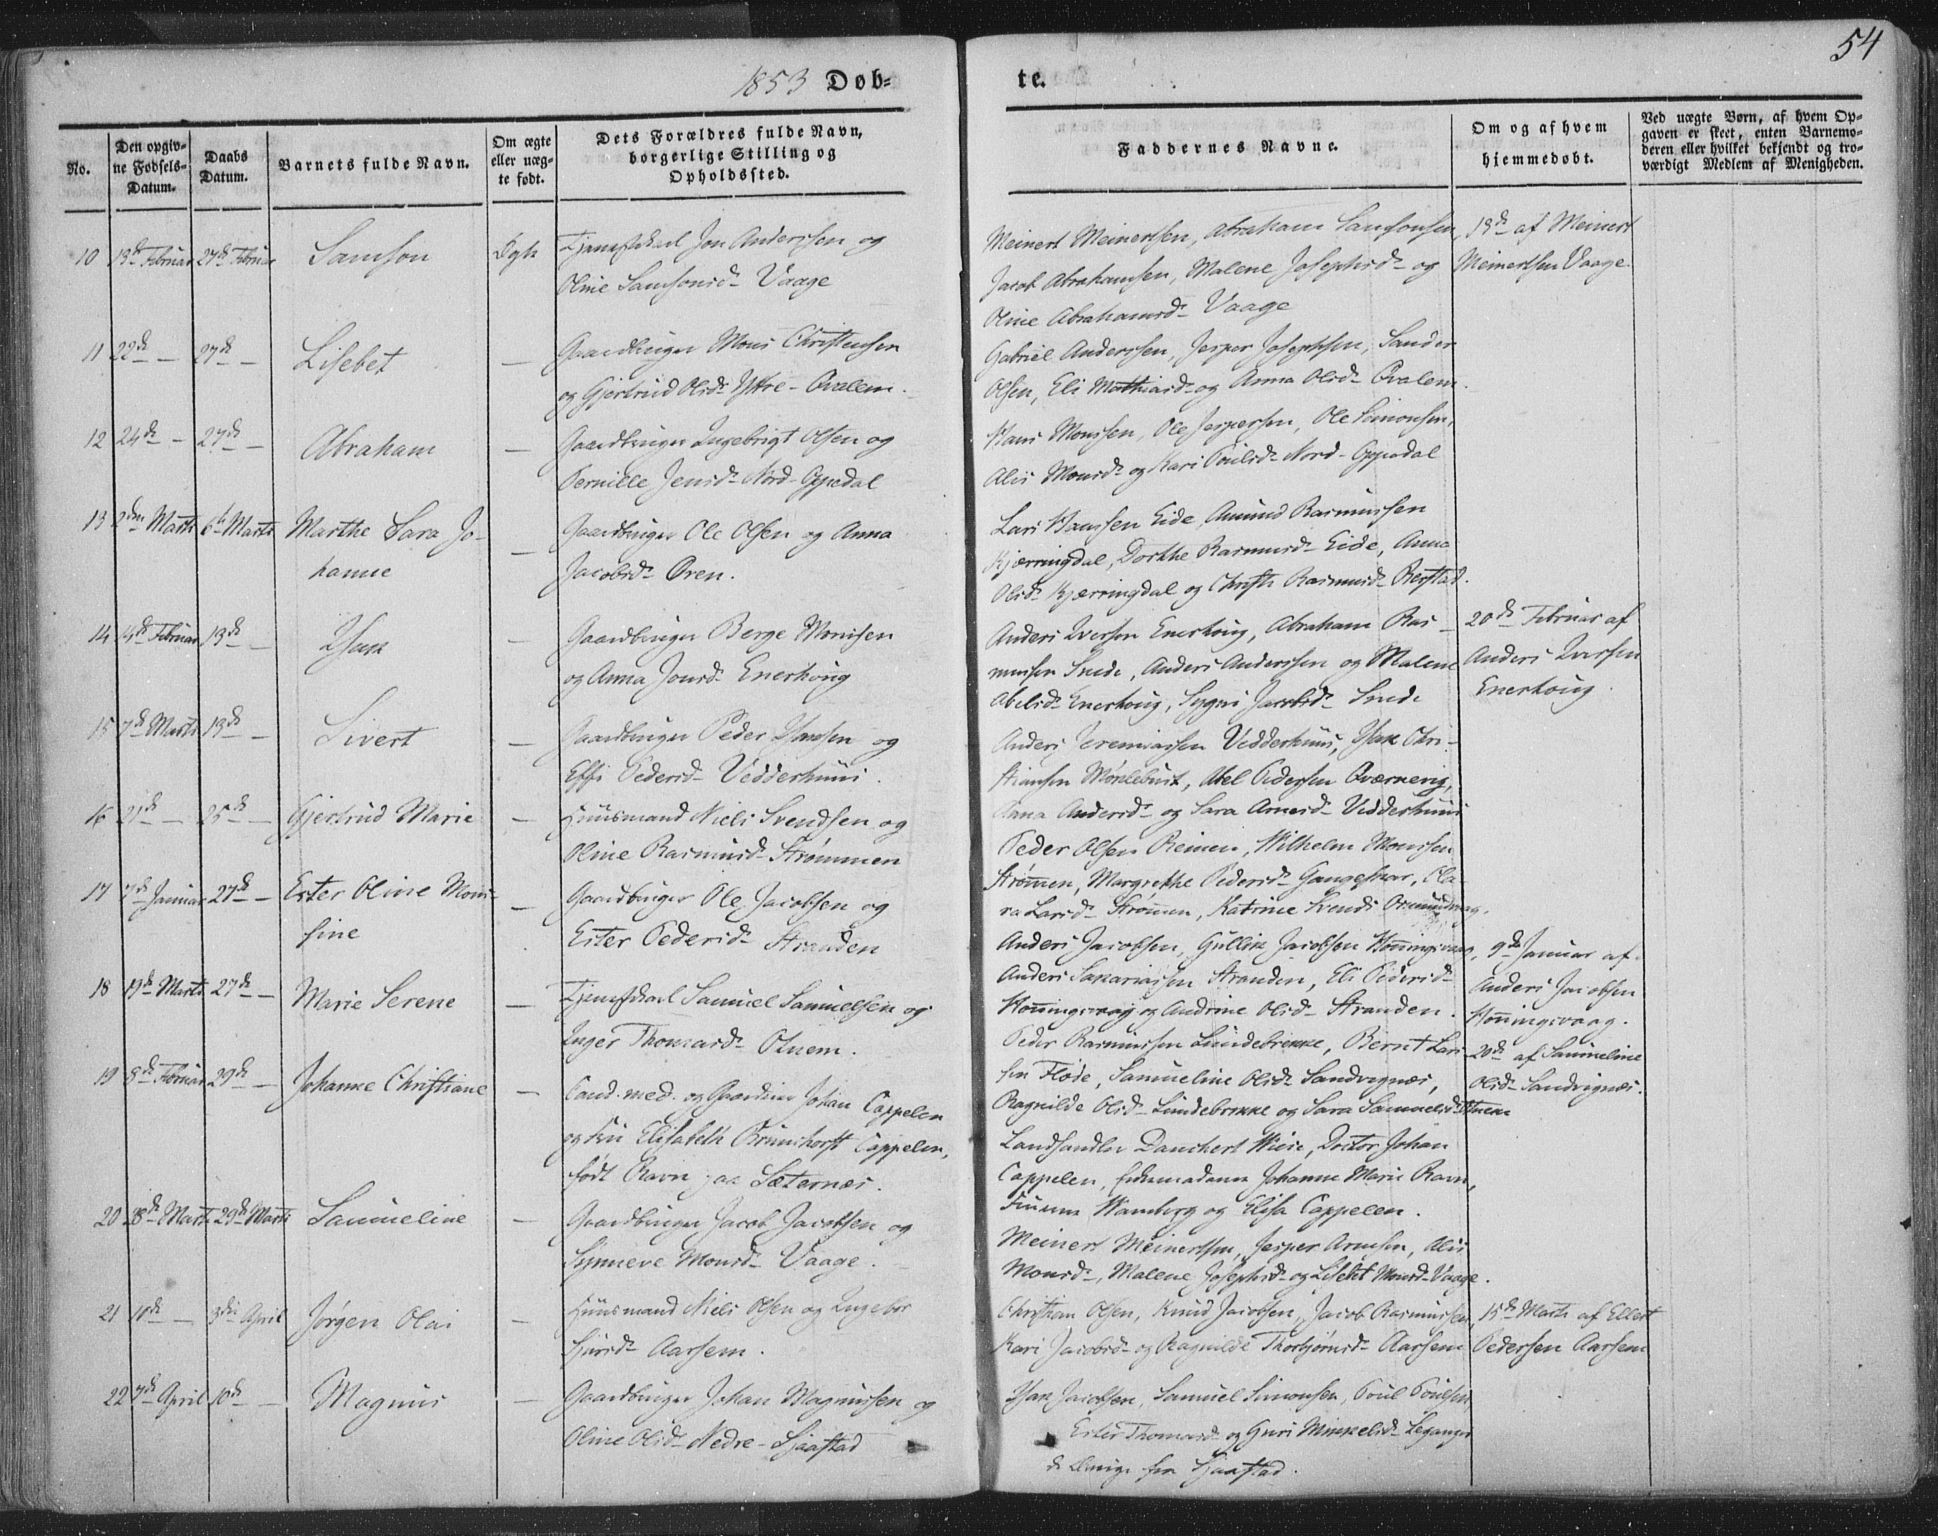 54
1853 Døb-
te.
No.
Den opgiv-
ne Fødsels-
Datum.
Daabs
Datum.
Barnets fulde Navn.
Om ægte
eller uæg-
te født.
Dets Forældres fulde Navn,
borgerlige Stilling og
Opholdssted.
Faddernes Navne.
Om og af hvem
hjemmedøbt.
Ved uægte Børn, af hvem Op-
gaven er skeet, enten Barnemo-
deren eller hvilket bekjendt og tro-
værdigt Medlem af Menigheden.
10 19de Februar 27de Februar Samson Ægte Tjenestekarl Jon Anderssen og
Oline Samsonsd- Vaage
Meinert Meinertsen, Abraham Samsonsen,
Jacob Abrahamsen, Malene Josephsd- og
Oline Abrahamsd- Vaage
19de af Meinert
Meinertsen Vaage.
11 22de — 27de — Lisebet — Gaardbruger Mons Christensen
og Gjertrud Olsd- Yttre-Qvalem.
Gabriel Anderssen, Jesper Josephsen, Sander
Olsen, Eli Mathiasd- og Anna Olsd- Qvalem.
12 24de — 27de — Abraham — Gaardbruger Ingebrigt Olsen og
Pernille Jensd- Nord-Oppedal
Hans Monssen, Ole Jespersen, Ole Simonsen,
Alis Monsd- og Kari Poulsd- Nord-Oppedal
13 2den Marts 6te Marts Marthe Sara Jo-
hanne
— Gaardbruger Ole Olsen og Anna
Jacobsd- Øren.
Lars Hanssen Eide, Amund Rasmussen
Kjærringdal, Dorthe Rasmusd- Eide, Anne
Olsd- Kjærringdal og Christi Rasmusd- Refstad.
14 14de Februar 13de — Ysak — Gaardbruger Berge Monssen
og Anna Jonsd- Enerhoug
Anders Iversen Enerhoug, Abraham Ras-
mussen Smede, Anders Anderssen og Malene
Abelsd- Enerhoug, Sygni Jacobsd- Smede
20de Februar af
Anders Iversen
Enerhoug.
15 7de Marts 13de — Sivert — Gaardbruger Peder Hansen og
Effi Pedersd- Vedderhuus.
Anders Jeremiassen Vedderhuus, Ysak Chri-
stiansen Mørlebust, Abel Pedersen Qværnevig,
Anna Andersd- og Sara Arnesd- Vedderhuus
16 21de — 25de — Gjertrud Marie — Huusmand Niels Svendsen og
Oline Rasmusd- Strømmen
Peder Olsen Reinen, Wilhelm Monssen
Strømen, Margrethe Pedersd- Gangeskar, Cla-
ra Larsd- Strømen, Katrine Svends
17 7de Januar 27de — Ester Oline Mon-
sine
— Gaardbruger Ole Jacobsen og
Ester Pedersd- Stranden
Anders Jacobsen, Gullik Jacobsen Honingsvaag,
Anders Sakariassen Stranden, Eli Pedersd-
Honingsvaag og Andrine Olsd- Stranden.
9de Januar af
Anders Jacobsen
Honingsvaag.
18 19de Marts 27de — Marie Serene — Tjenestekarl Samuel Samuelsen og
Inger Thomasd- Otnem.
Peder Rasmussen Lundebrekke, Bernt Lar-
sen Fløde, Samueline Olsd- Sandvignæs,
Ragnilde Olsd- Lundebrekke og Sara Samuelsd- Otnem
20de af Samueline
Olsd- Sandvignæs.
19 8de Februar 29de — Johanne Christiane — Cand. med. og Gaardeier Johan Cappelen
og Fru Elisabeth Brunchorst Cappelen,
født Ravn paa Sæternæs.
Landhandler Danchert Wiese, Doctor Johan
Cappelen, Johanne Marie Ravn,
Wamberg og Elisa Cappelen.
20 28de Marts 29de Marts Samueline — Gaardbruger Jacob Jacobsen og
Synneve Monsd- Vaage.
Meinert Meinertsen, Jesper Arnesen, Alis
Monsd-, Malene Josephsd- og Lisebet Monsd- Vaage.
21 11de — 3die April Jørgen Olai — Huusmand Niels Olsen og Ingebor
Sjursd- Aarsem.
Christian Olsen, Knud Jacobsen, Jacob Rasmussen,
Kari Jacobsd- og Ragnilde Thorbjørnsd- Aarsem
15de Marts af Ellert
Pedersen Aarsem
22 7de April 10de — Magnus — Gaardbruger Johan Magnussen og
Oline Olsd- Nedre-Sjaastad
Ysak Jacobsen, Samuel Simonsen, Poul Poulsen
Ester Thomasd- og Guri Mikkelsd- Leganger
de Øvrige fra Sjaastad.